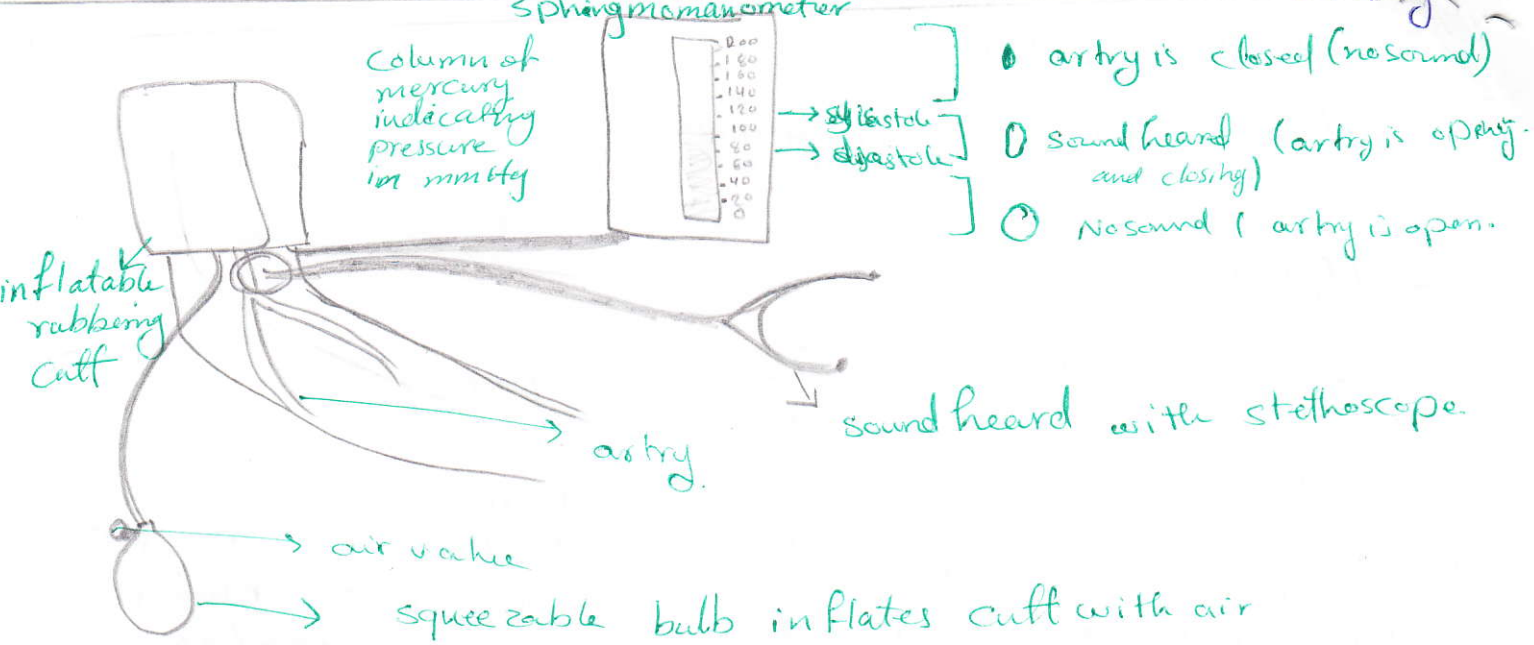 Sphingmomanometer
column of
mercury
indicating
pressure
in mmHg
200
180
160
140
120
100
80
60
40
20
0
systole
diastole
artry is closed (no sound)
sound heard (artry is opening
and closing)
No sound ( artry is open.
inflatable
rubbeing
cuff
sound heard with stethoscope.
artry.
air value
squeezable bulb inflates cuff with air